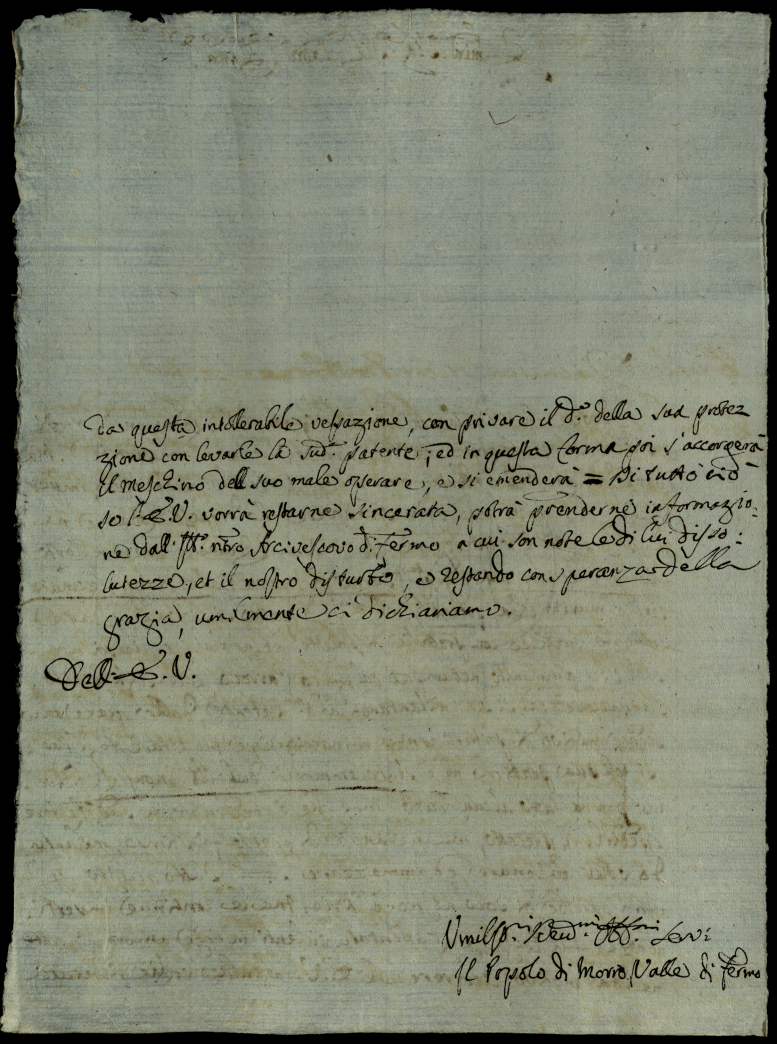 da questa intollerabile vessazione, con privare il d.º della sua protez
zione con levarle la sud.ª patente; ed in questa forma poi s'accorgerà
il meschino dell suo male operare, e si emenderà = Di tutto ciò
so l'E.V. vorrà restarne sincerata, potrà prenderne informazio:
ne dall' nro Arcivescovo di Fermo a cui son note le di lui disso:
lutezze, et il nostro disturbo, e restando con speranza della
grazia, umilmente ci dichiariamo.
Dell' E.V.
Umilss.mi Servi
Il Popolo di Morro, Valle di Fermo